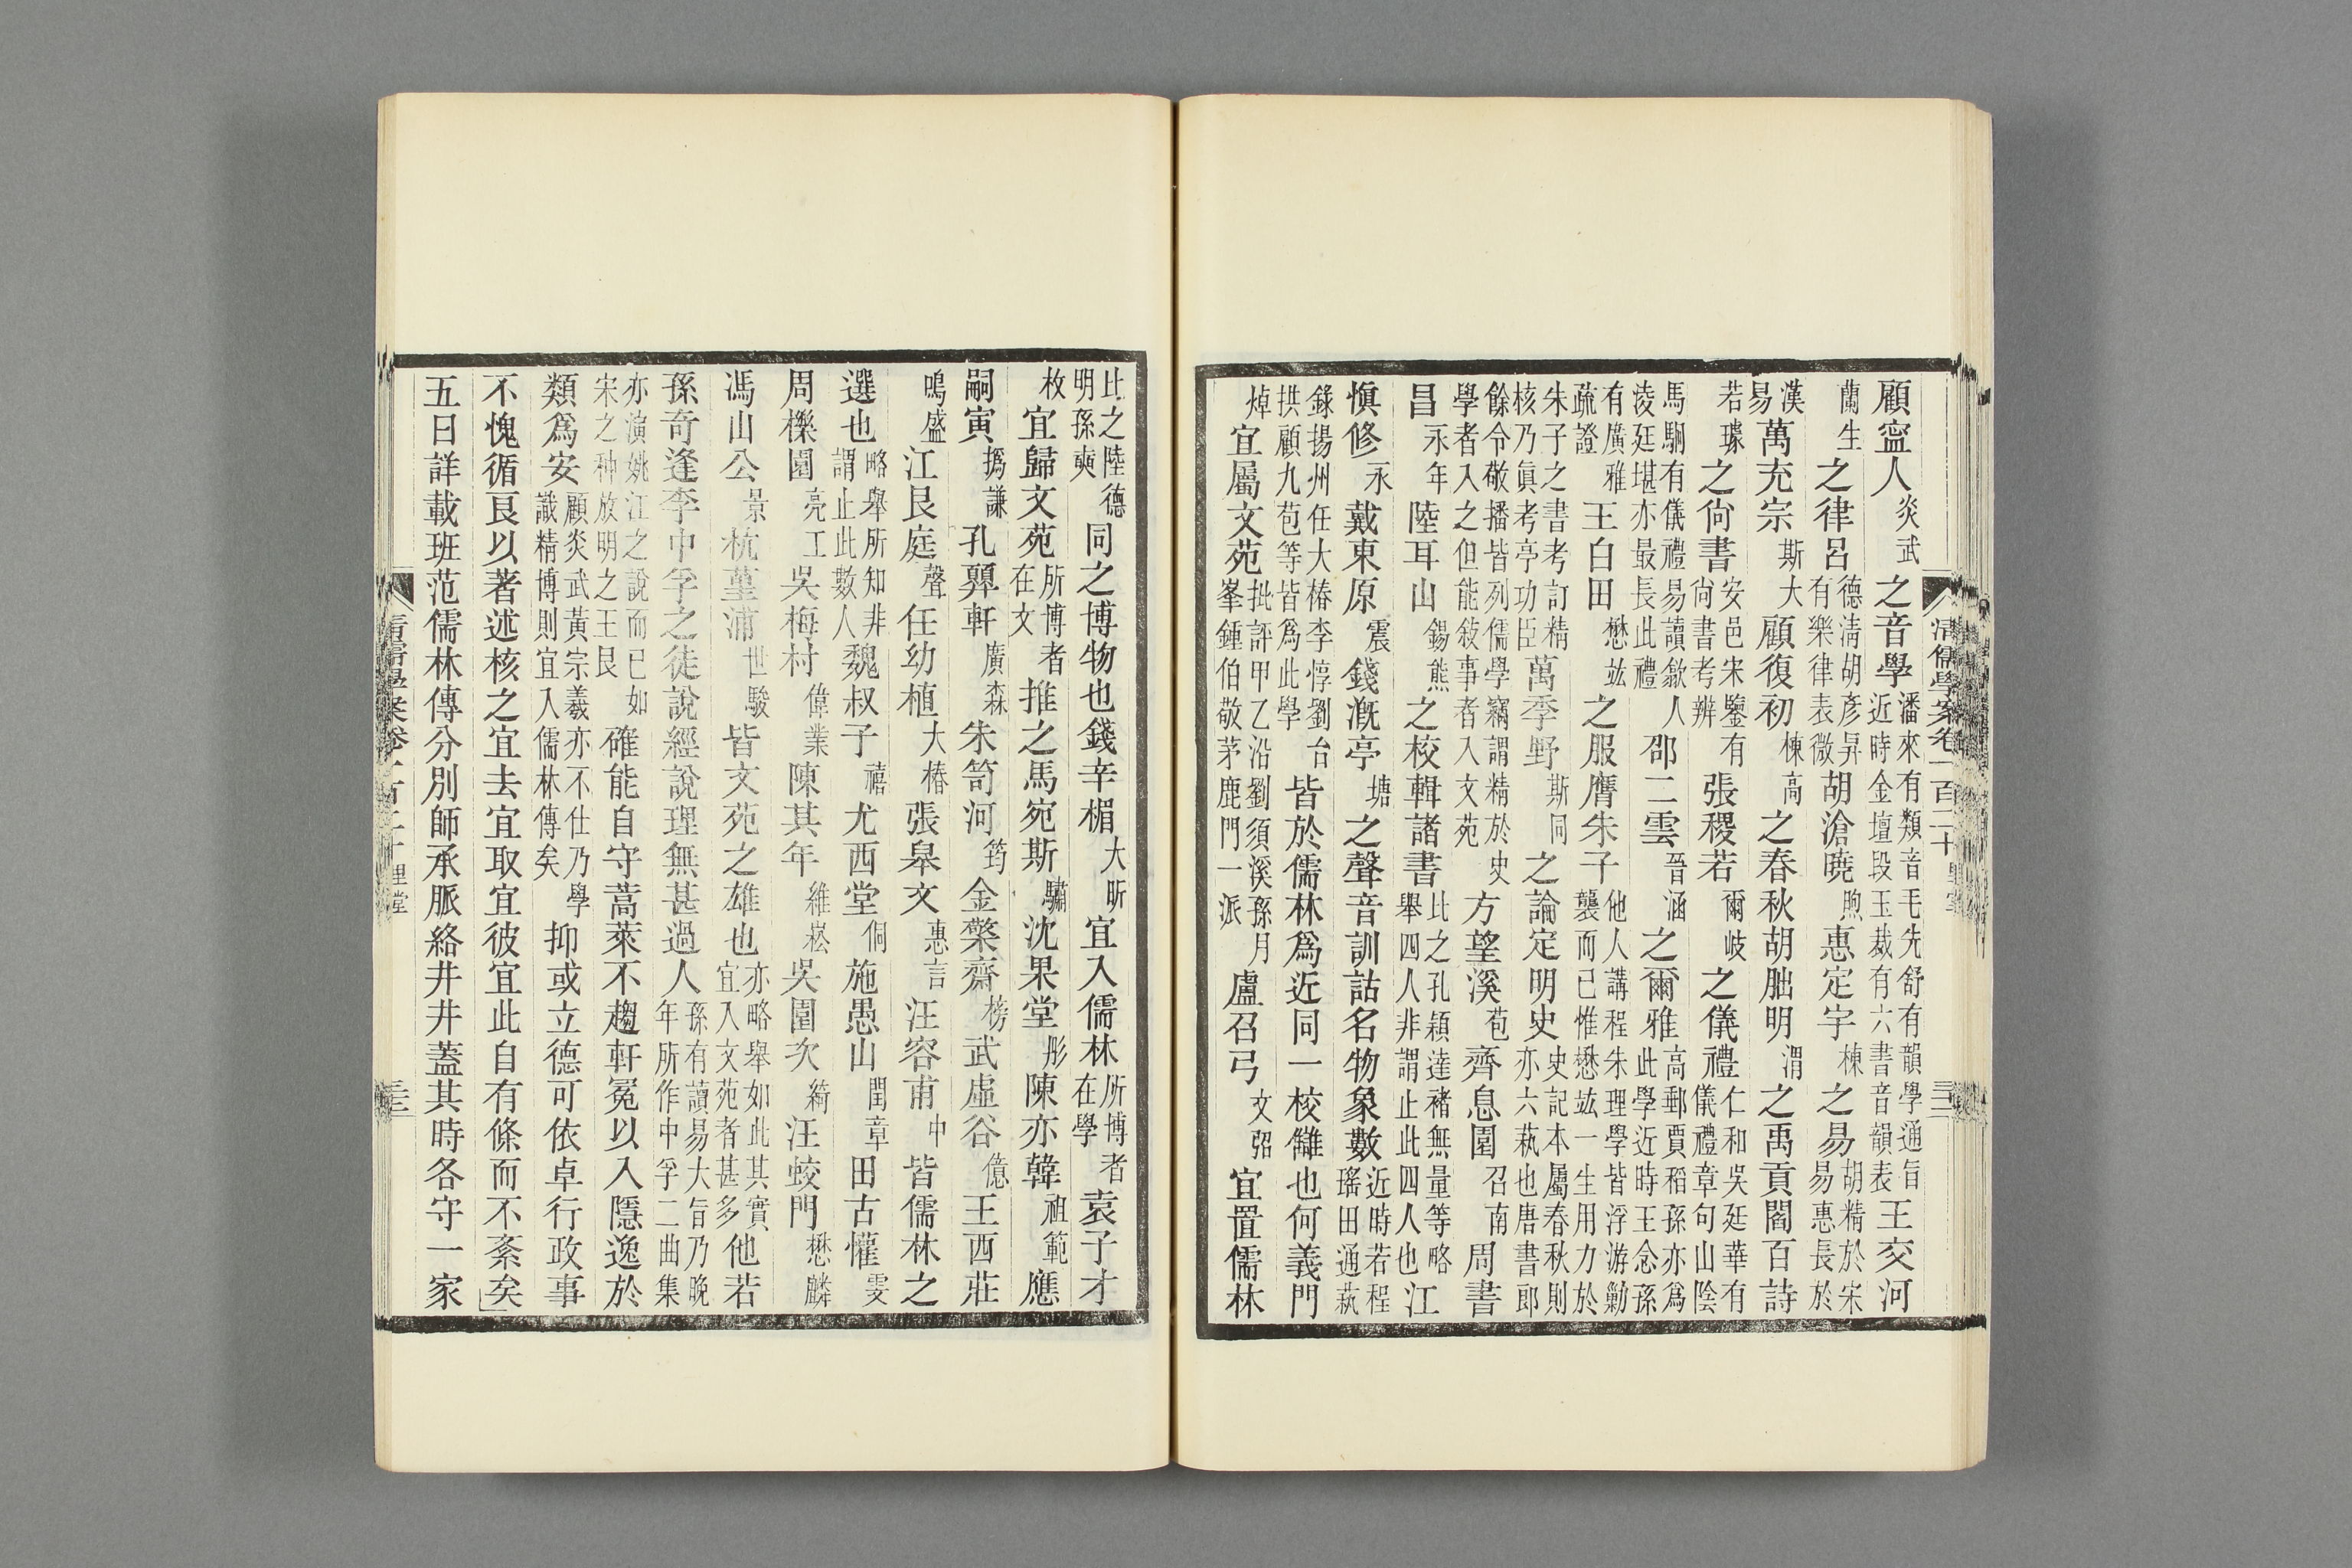 清儒學案卷一百二十 里堂
顧寍人炎武之音學潘來有類音毛先舒有韻學通旨近時金壇段玉裁有六書音韻表王交河
蘭生之律呂德淸胡彥昇有樂律表微胡滄曉煦惠定宇棟之易胡精於宋易惠長於
漢易萬充宗斯大顧復初棟高之春秋胡朏明渭之禹貢閻百詩
若璩之尙書安邑宋鑒有尙書考辨張稷若爾岐之儀禮仁和吳廷華有儀禮章句山陰
馬駉有儀禮易讀歙人淩廷堪亦最長此禮邵二雲晉涵之爾雅高郵賈稻孫亦爲此學近時王念孫
有廣雅疏證王白田懋竑之服膺朱子他人講程朱理學皆浮游勦襲而已惟懋竑一生用力於
朱子之書考訂精核乃眞考亭功臣萬季野斯同之論定明史史記本屬春秋則亦六蓺也唐書郎
餘令敬播皆列儒學竊謂精於史學者入之但能敍事者入文苑方望溪苞齊息園召南周書
昌永年陸耳山錫熊之校輯諸書比之孔穎達褚無量等略舉四人非謂止此四人也江
愼修永戴東原震錢漑亭塘之聲音訓詁名物象數近時若程瑤田通蓺
錄揚州任大椿李惇劉台拱顧九苞等皆爲此學皆於儒林爲近同一校讎也何義門
焯宜屬文苑批評甲乙沿劉須溪孫月峯鍾伯敬茅鹿門一派盧召弓文弨宜置儒林
比之陸德明孫奭同之博物也錢辛楣大昕宜入儒林所博者在學袁子才
枚宜歸文苑所博者在文推之馬宛斯驌沈果堂彤陳亦韓祖範應
嗣寅撝謙孔顨軒廣森朱笥河筠金檠齋榜武虛谷億王西莊
鳴盛江艮庭聲任幼植大椿張皋文惠言汪容甫中皆儒林之
選也略舉所知非謂止此數人魏叔子禧尤西堂侗施愚山閏章田古懽雯
周櫟園亮工吳梅村偉業陳其年維崧吳園次綺汪蛟門懋麟
馮山公景杭堇浦世駿皆文苑之雄也亦略舉如此其實宜入文苑者甚多他若
孫奇逢李中孚之徒說經說理無甚過人孫有讀易大旨乃晚年所作中孚二曲集
亦演姚江之說而已如宋之种放明之王艮確能自守蒿萊不趨軒冕以入隱逸於
類爲安顧炎武黃宗羲亦不仕乃學識精博則宜入儒林傳矣抑或立德可依卓行政事
不愧循良以著述核之宜去宜取宜彼宜此自有條而不紊矣
五日詳載班范儒林傳分別師承脈絡井井蓋其時各守一家
清儒學案卷一百二十 里堂